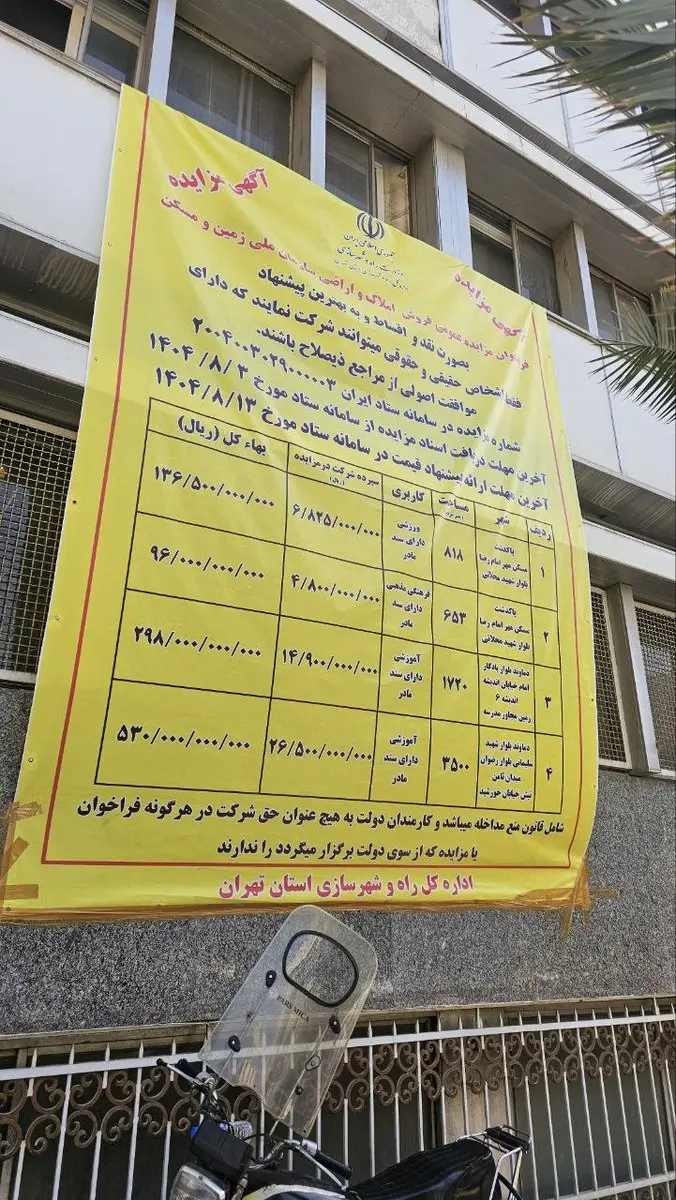 آگهی مزایده
آگهی مزایده
جمهوری اسلامی ایران
وزارت راه و شهرسازی
فراخوان مزایده عمومی فروش املاک و اراضی سازمان ملی زمین و مسکن
بصورت نقد و اقساط و به بهترین پیشنهاد
فقط اشخاص حقیقی و حقوقی میتوانند شرکت نمایند که دارای
موافقت اصولی از مراجع ذیصلاح باشند.
شماره مزایده در سامانه ستاد ایران ۲۰۰۴۰۰۳۰۲۹۰۰۰۰۰۳
آخرین مهلت دریافت اسناد مزایده از سامانه ستاد مورخ ۱۴۰۴/۸/۳
آخرین مهلت ارائه پیشنهاد قیمت در سامانه ستاد مورخ ۱۴۰۴/۸/۱۳
ردیف شهر مساحت کاربری سپرده شرکت درمزایده (ریال) بهاء کل (ریال)
۱ پاکدشت مسکن مهر امام رضا بلوار شهید محلاتی ۸۱۸ ورزشی دارای سند مادر ۶/۸۲۵/۰۰۰/۰۰۰ ۱۳۶/۵۰۰/۰۰۰/۰۰۰
۲ پاکدشت مسکن مهر امام رضا بلوار شهید محلاتی ۶۵۳ فرهنگی مذهبی دارای سند مادر ۴/۸۰۰/۰۰۰/۰۰۰ ۹۶/۰۰۰/۰۰۰/۰۰۰
۳ دماوند بلوار یادگار امام خیابان اندیشه اندیشه ۶ زمین مجاور مدرسه ۱۷۲۰ آموزشی دارای سند مادر ۱۴/۹۰۰/۰۰۰/۰۰۰ ۲۹۸/۰۰۰/۰۰۰/۰۰۰
۴ دماوند بلوار شهید سلیمانی بلوار رضوان میدان ثامن نبش خیابان خورشید ۳۵۰۰ آموزشی دارای سند مادر ۲۶/۵۰۰/۰۰۰/۰۰۰ ۵۳۰/۰۰۰/۰۰۰/۰۰۰
شامل قانون منع مداخله میباشد و کارمندان دولت به هیچ عنوان حق شرکت در هرگونه فراخوان
یا مزایده که از سوی دولت برگزار میگردد را ندارند
اداره کل راه و شهرسازی استان تهران
PARS MICA